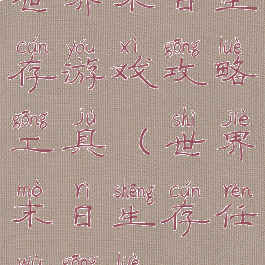 世界末日生
cún yóu xì gōng lüè
存游戏攻略
gōng jù shì jiè
工具(世界
mò rì shēng cún rèn
末日生存任
wù gōng lüè